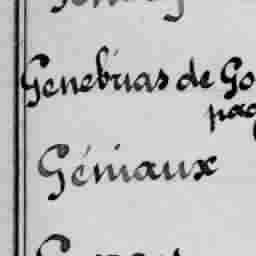 Genebrias de Go
pag
Géniaux